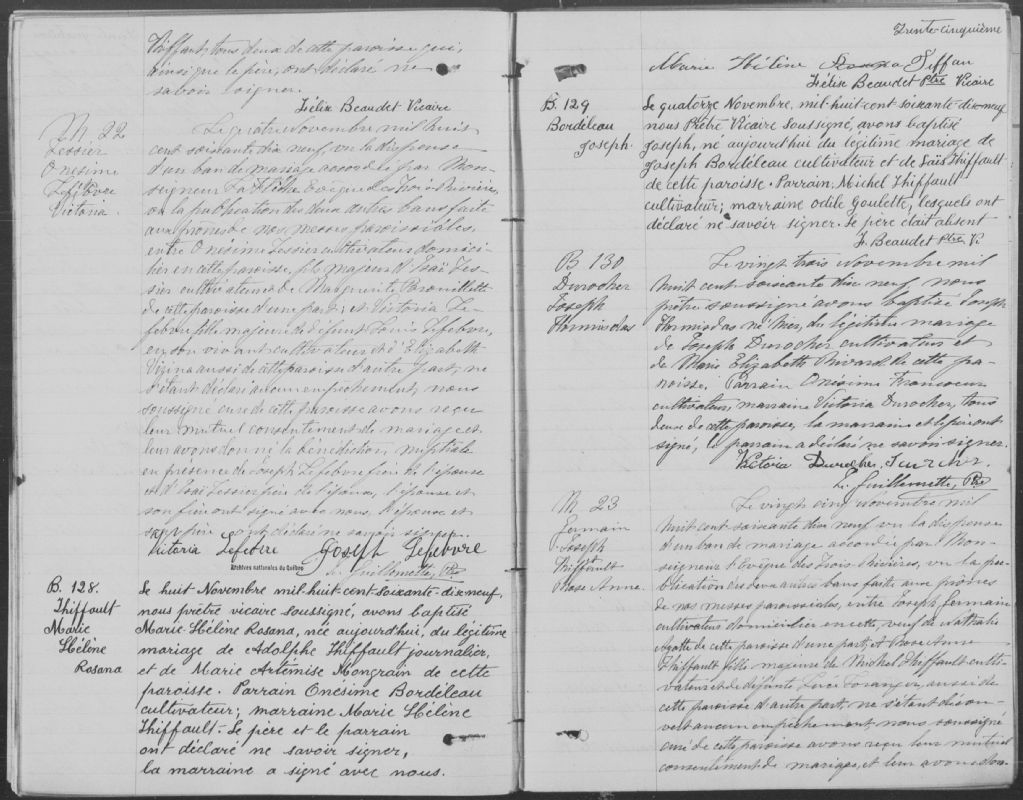 Thiffault, tous deux de cette paroisse qui,
ainsi que le père, ont déclaré ne
savoir signer.
Félix Beaudet Vicaire
M. 22
Tessier
Onésime
Lefebvre
Victoria
Le quatre Novembre mil huit
cent soixante dix neuf, vu la dispense
d'un ban de mariage accordée par Mon-
seigneur Évêque des Trois Rivières,
vu la publication des deux autres bans faite
aux prônes de nos messes paroissiales,
entre Onésime Tessier cultivateur domici-
lié en cette paroisse, fils majeur d'Esaï Tes-
sier cultivateur et de Marguerite
de cette paroisse d'une part; et Victoria Le-
febvre fille majeure de défunt Louis Lefebvre,
en son vivant cultivateur et d'Elizabeth
Vézina aussi de cette paroisse d'autre part, ne
s'étant déclaré aucun empêchement, nous
soussigné curé de cette paroisse avons reçu
leur mutuel consentement de mariage et
leur avons donné la bénédiction nuptiale
en présence de Joseph Lefebvre frère de l'épouse
et d'Esaï Tessier père de l'époux, l'épouse et
son frère ont signé avec nous, l'époux et
son père ont déclaré ne savoir signer.
Victoria Lefebvre Joseph Lefebvre
Archives nationales du Québec
Guillemette, Ptre
B. 128.
Thiffault
Marie
Hélène
Rosana
Le huit Novembre mil-huit-cent soixante-dix-neuf,
nous prêtre vicaire soussigné, avons baptisé
Marie-Hélène Rosana, née aujourd'hui, du légitime
mariage de Adolphe Thiffault journalier,
et de Marie Artémise Mongrain de cette
paroisse. Parrain Onésime Bordéleau
cultivateur; marraine Marie Hélène
Thiffault. Le père et le parrain
ont déclaré ne savoir signer,
la marraine a signé avec nous.
Trente-cinquième
Marie Hélène Tiffau
Félix Beaudet Ptre Vicaire
B. 129
Bordéleau
Joseph.
Le quatorze Novembre, mil-huit cent soixante-dix-neuf
nous Prêtre Vicaire soussigné, avons baptisé
Joseph, né aujourd'hui du légitime mariage de
Joseph Bordéleau cultivateur et de Laïs Thiffault
de cette paroisse. Parrain, Michel Thiffault
cultivateur; marraine Odile Goulette, lesquels ont
déclaré ne savoir signer. Le père était absent
F. Beaudet Ptre Vi.
B 130
Durocher
Joseph
Hormisdas
Le vingt trois Novembre mil
huit cent soixante dix neuf, nous
prêtre soussigné avons baptisé Joseph
Hormisdas né hier, du légitime mariage
de Joseph Durocher cultivateur et
de Marie Elizabeth Rivard de cette pa-
roisse. Parrain Onésime Francoeur
cultivateur, marraine Victoria Durocher, tous
deux de cette paroisse, la marraine et le père ont
signé, le parrain a déclaré ne savoir signer.
Victoria Durocher,
Guillemette, Ptre
M. 23
Germain
Joseph
Thiffault
Rose Anne.
Le vingt cinq novembre mil
huit cent soixante dix neuf vu la dispense
d'un ban de mariage accordée par Mon-
seigneur l'Evêque des Trois Rivières, vu la pu-
blication des deux autres bans faite aux prônes
de nos messes paroissiales, entre Joseph Germain
cultivateur domicilié en cette, veuf de Nathalie
Ayotte de cette paroisse d'une part, et Rose Anne
Thiffault fille majeure de Michel Thiffault culti-
vateur et de défunte Toranger, aussi de
cette paroisse d'autre part, ne s'étant décou-
vert aucun empêchement, nous soussigné
curé de cette paroisse avons reçu leur mutuel
consentement de mariage, et leur avons don-